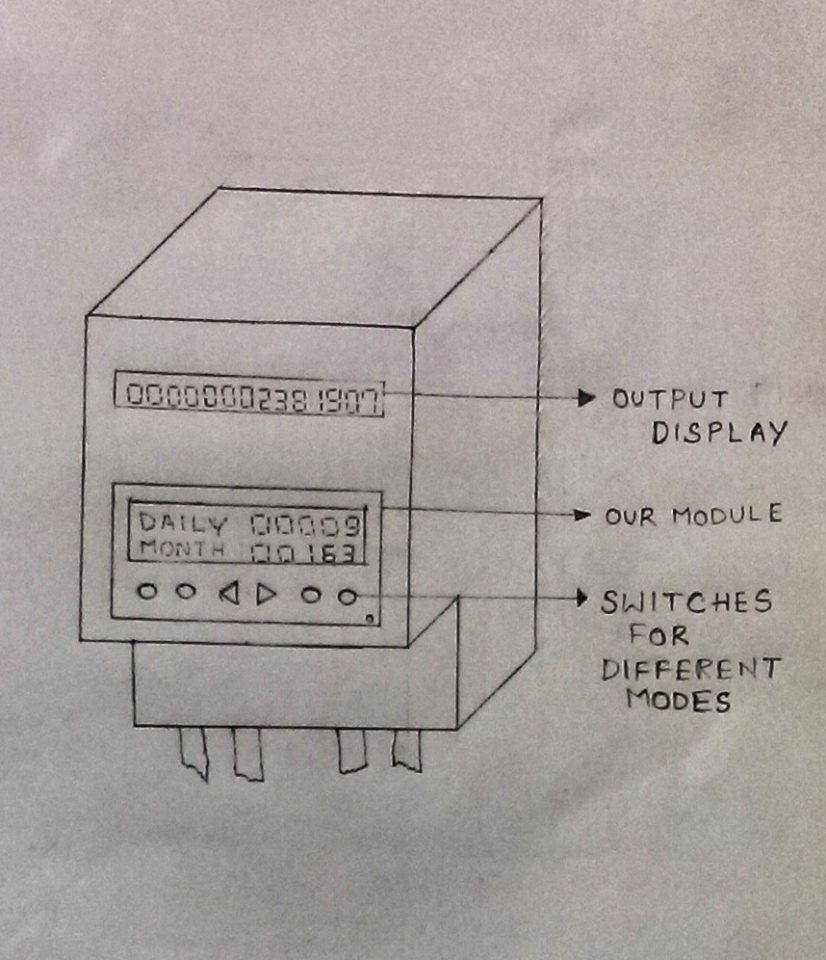 00000002381907
OUTPUT
DISPLAY
DAILY 00009
MONTH 00163
OUR MODULE
SWITCHES
FOR
DIFFERENT
MODES